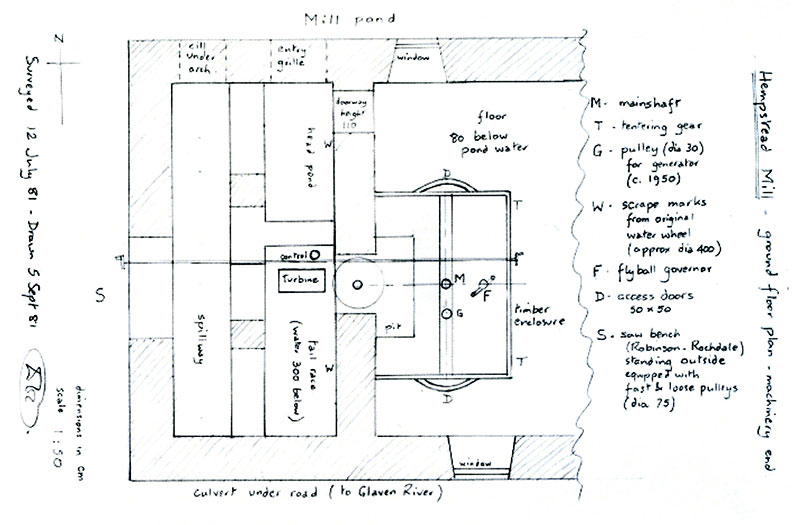 Hempstead Mill - ground floor plan - machinery end
Mill pond
N
cill
under
arch
entry
grille
window
doorway
height
110
floor
80 below
pond water
head pond
W
D
T
control
Turbine
M
G
F
pit
timber
enclosure
spillway
tail race
(water 300 below)
W
T
D
S
window
culvert under road (to Glaven River)
M - mainshaft
T - tentering gear
G - pulley (dia 30)
for generator
(c. 1950)
W - scrape marks
from original
water wheel
(approx dia 400)
F - flyball governor
D - access doors
50 x 50
S - saw bench
(Robinson - Rochdale)
standing outside
equipped with
fast & loose pulleys
(dia 75)
Surveyed 12 July 81 - Drawn 5 Sept 81
dimensions in cm
scale 1:50